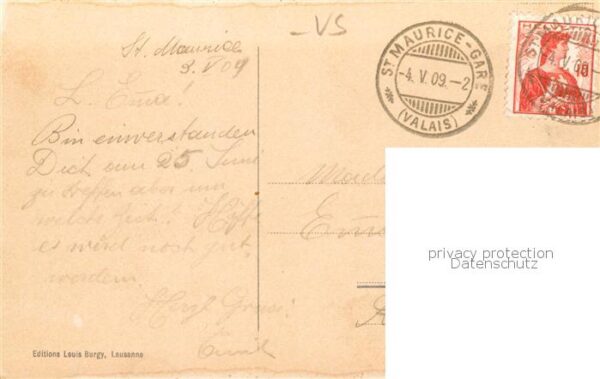 -VS
St. Maurice
3. V 09
L. Ema!
Bin einverstanden
Dich am 25. Juni
zu treffen aber um
welche Zeit! Hoffe
es wird noch gut
werden.
Herzl Gruss!
Emil
ST MAURICE-GARE
-4. V. 09.-2
(VALAIS)
10
Editions Louis Burgy, Lausanne
privacy protection
Datenschutz